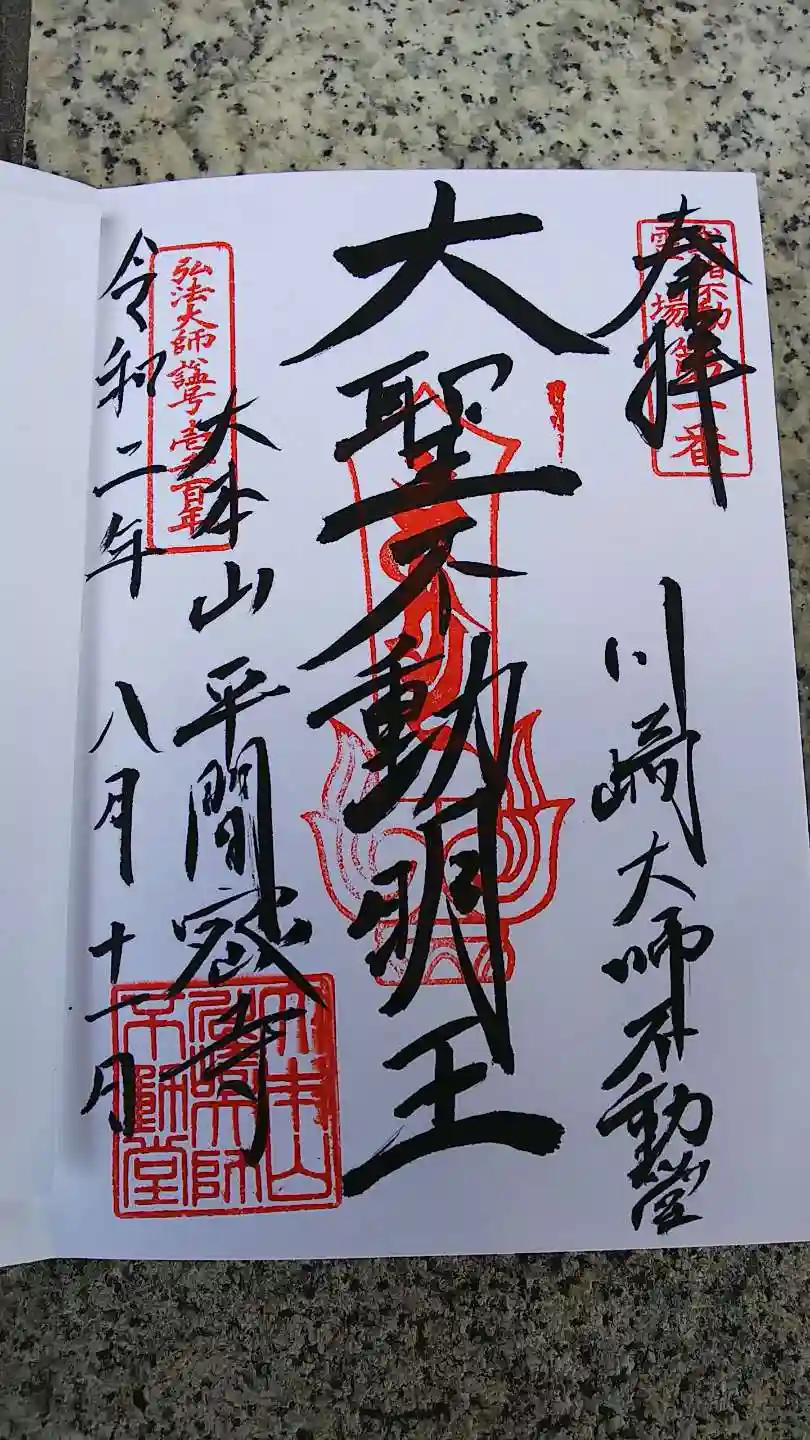 奉拝
霊場第一番
川崎大師不動堂
大聖不動明王
弘法大師諡号壱千百年
大本山平間寺
令和二年八月十一日
大本山
川崎大師
不動堂